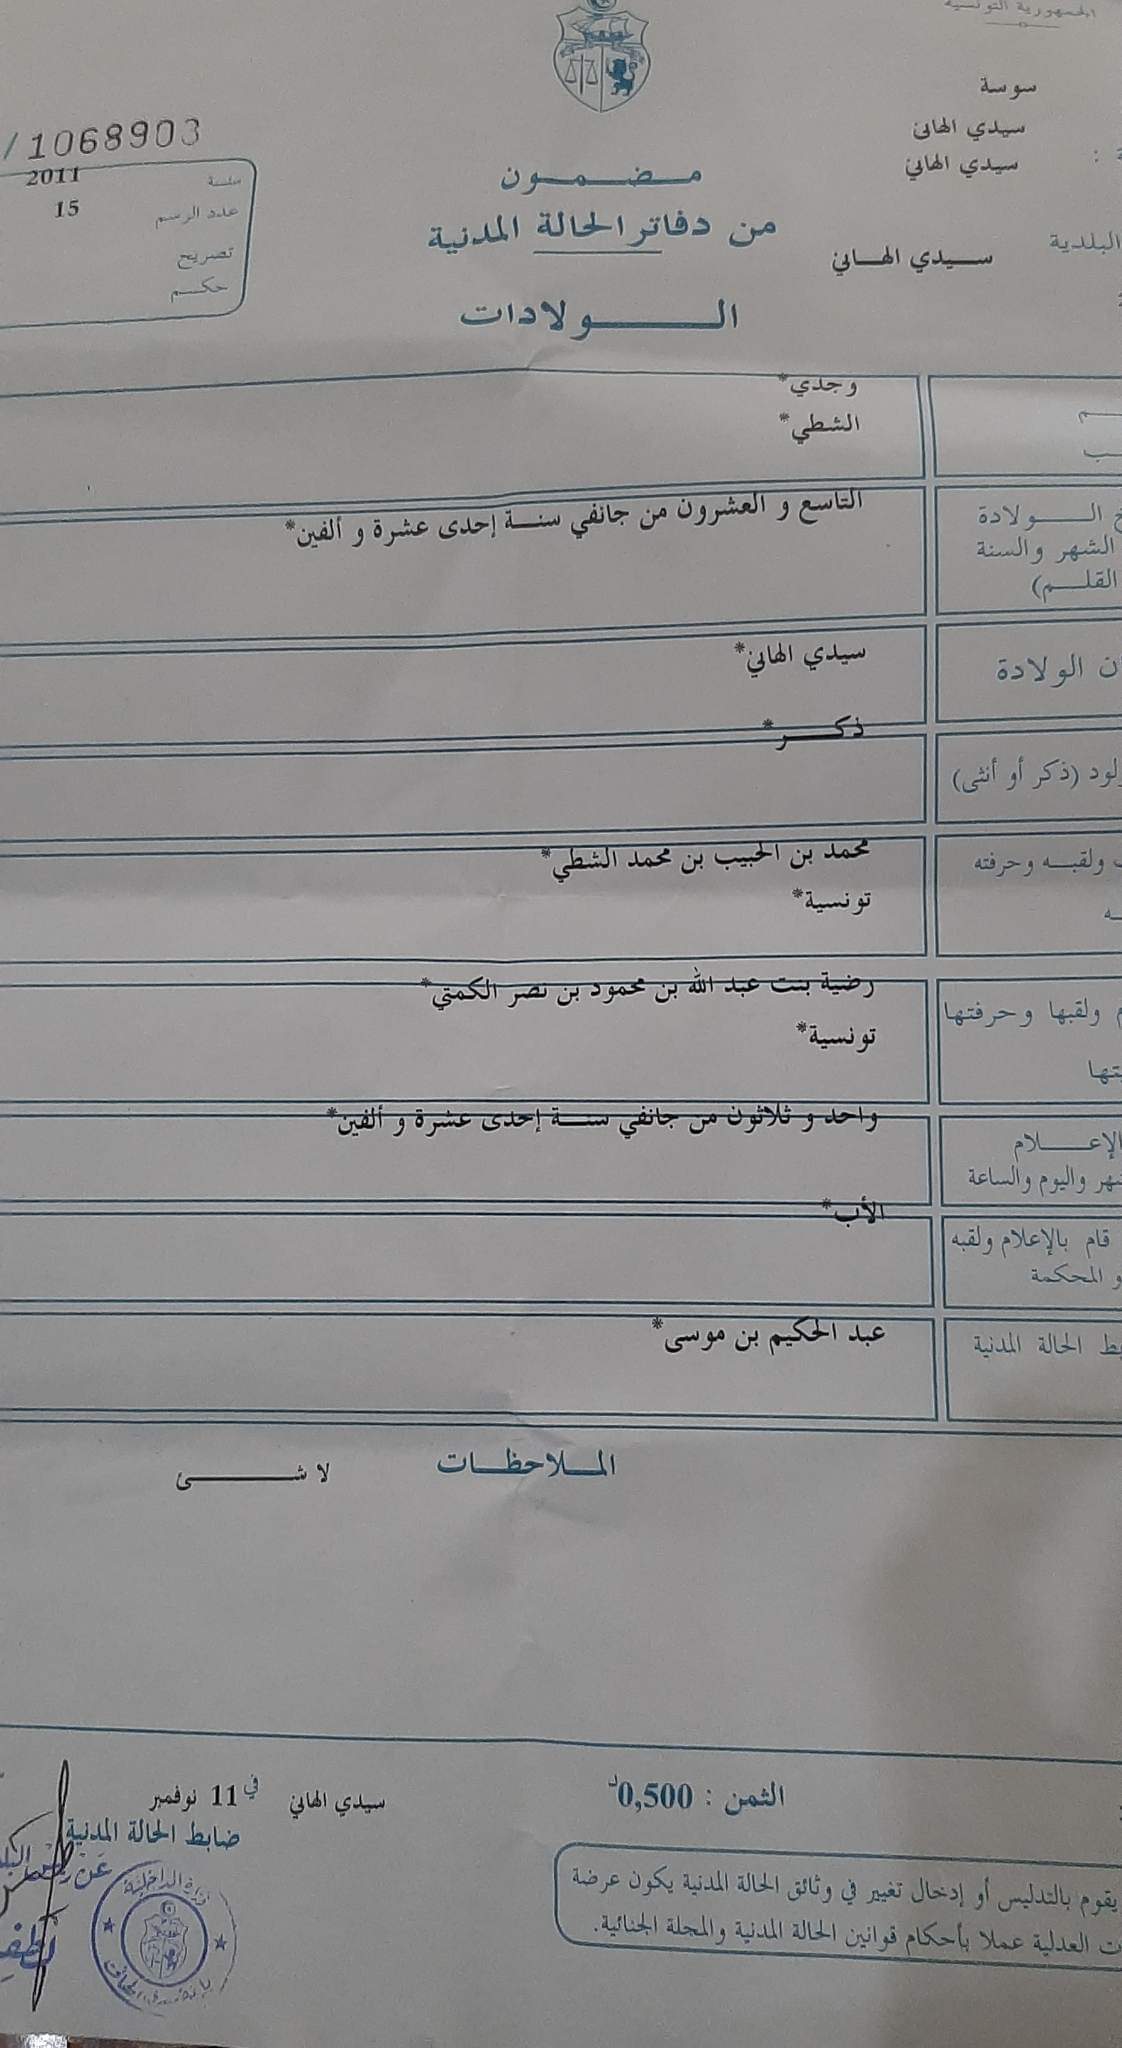 الجمهورية التونسية
سوسة
سيدي الهاني
سيدي الهاني
البلدية
سيدي الهاني
/1068903
سنة 2011
عدد الرسم 15
تصريح
حكم
مضمون
من دفاتر الحالة المدنية
الولادات
وجدي*
الشطي*
الولادة
الشهر والسنة
القلم)
التاسع و العشرون من جانفي سنة إحدى عشرة و ألفين*
الولادة
سيدي الهاني*
(ذكر أو أنثى)
ذكر*
ولقبه وحرفته
محمد بن الحبيب بن محمد الشطي*
تونسية*
ولقبها وحرفتها
رضية بنت عبد الله بن محمود بن نصر الكمتي*
تونسية*
الإعلام
واليوم والساعة
واحد و ثلاثون من جانفي سنة إحدى عشرة و ألفين*
قام بالإعلام ولقبه
المحكمة
الأب*
الحالة المدنية
عبد الحكيم بن موسى*
الملاحظات
لا شئ
الثمن : 0,500د
سيدي الهاني في 11 نوفمبر
ضابط الحالة المدنية
وزارة الداخلية
يقوم بالتدليس أو إدخال تغيير في وثائق الحالة المدنية يكون عرضة
العدلية عملا بأحكام قوانين الحالة المدنية والمجلة الجنائية.